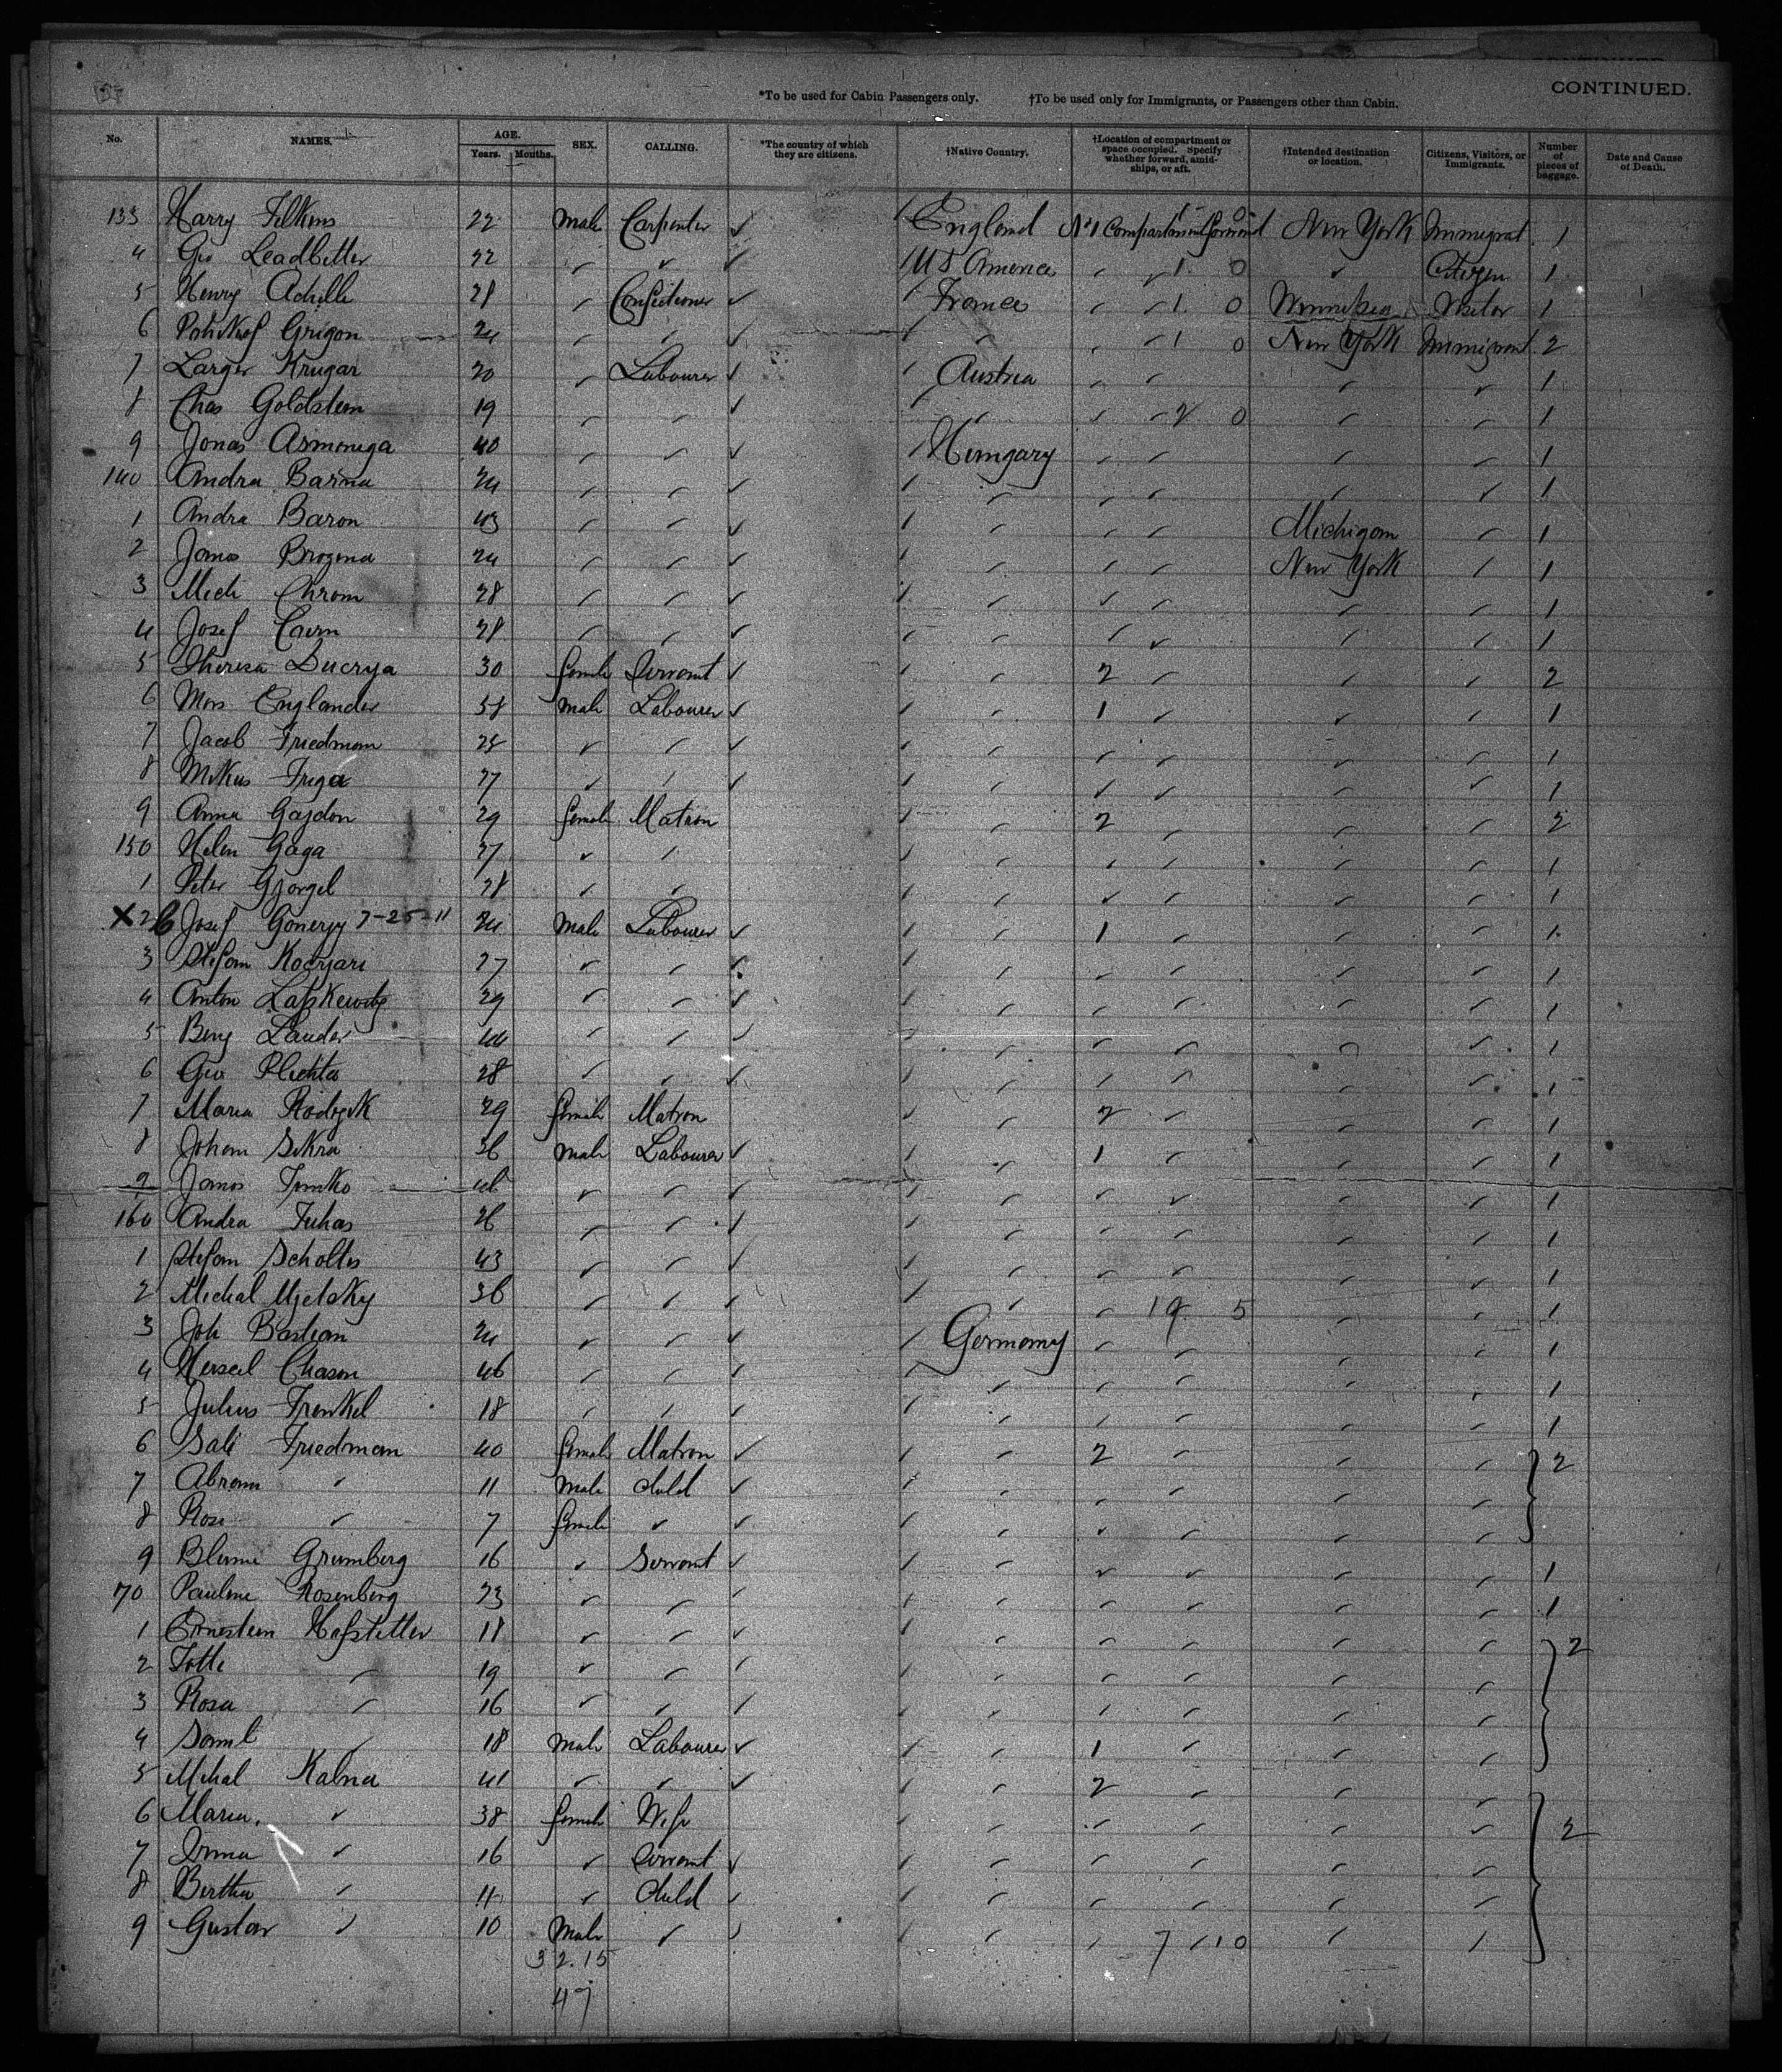 CONTINUED.
*To be used for Cabin Passengers only. †To be used only for Immigrants, or Passengers other than Cabin.
No. NAMES. AGE. Years. Months. SEX. CALLING. *The country of which they are citizens. †Native Country. †Location of compartment or space occupied. Specify whether forward, amidships, or aft. †Intended destination or location. Citizens, Visitors, or Immigrants. Number of pieces of baggage. Date and Cause of Death.
133 Harry Filkins 22 male Carpenter England No 1 Compartment forward New York Immigrat 1
4 Geo Leadbetter 22 U S America 1 0 Citizen 1
5 Henry Achille 28 Confectioner France 1 0 Visitor 1
6 Grigon 24 1 0 New York Immigrant 2
7 Larger Krugar 20 Labourer Austria 1
8 Chas Goldstein 19 2 0 1
9 Jonas Asmonega 40 Hungary 1
140 Andra Barina 24 1
1 Andra Baron 43 Michigan 1
2 Janos Brogena 24 New York 1
3 Mich Chrom 28 1
4 Josef Cavin 28 1
5 Theresa Ducrya 30 female Servant 2 2
6 Mors Englander 58 male Labourer 1 1
7 Jacob Friedman 25 1
8 Mikus Friga 27 1
9 Anna Gajdon 29 female Matron 2 2
150 Helen Gaga 27 1
1 Peter Gjorgel 28 1
X 2 Josef Gonerjy 7-25-11 24 Male Labourer 1 1
3 Stefan Kocrjari 27 1
4 Anton 29 1
5 Berg Lauder 44 1
6 Geo Plichta 28 1
7 Maria 29 female Matron 2 1
8 Johan Sikra 36 male Labourer 1 1
9 Janos Timko 46 1
160 Andra Juhas 26 1
1 Stefan Scholtis 43 1
2 Michal Mjelsky 36 19 5 1
3 Joh Bastian 24 Germany 1
4 Herscel Chason 46 1
5 Julius Frenkel 18 1
6 Sali Friedman 40 female Matron 2 2
7 Abram 11 male child
8 Rosi 7 female
9 Blume Grumberg 16 Servant 1
70 Pauline Rosenberg 23 1
1 Ernestein Hofstetter 18 2
2 Totti 19
3 Rosa 16
4 Saml 18 male Labourer 1
5 Mihal Kalna 41 2
6 Maria 38 female Wife 2
7 Irma 16 Servant
8 Bertha 11 Child
9 Gustav 10 Male 7 10
32.15
47